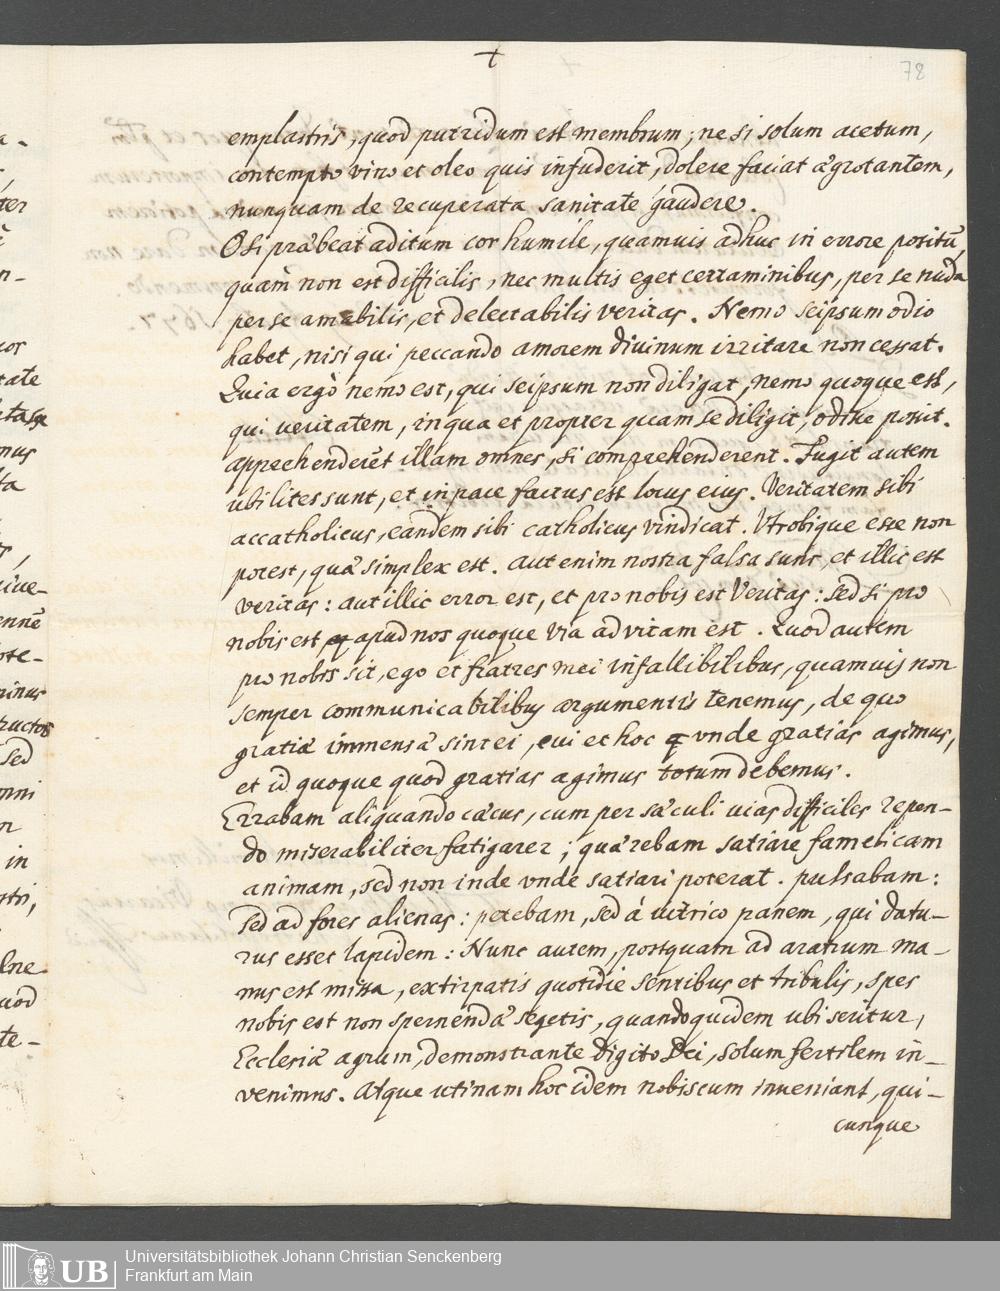 +
78
emplastris, quod putridum est membrum; ne si solum acetum,
contempto vino et oleo quis infuderit, dolere faciat aegrotantem,
nunquam de recuperata sanitate gaudere.
O si praebeat aditum cor humile, quamuis adhuc in errore positũ,
quàm non est difficilis, nec multis eget certaminibus, per se nuda
per se amabilis, et delectabilis veritas. Nemo seipsum odio
habet, nisi qui peccando amorem divinum irritare non cessat.
Quia ergò nemo est, qui seipsum non diligat, nemo quoque est,
qui veritatem, in qua et propter quam se diligit, odire possit.
apprehenderẽt illam omnes, si comprehenderent. Fugit autem
ubi lites sunt, et in pace factus est locus eius. Veritatem sibi
accatholicus, eandem sibi catholicus vindicat. Vtrobique esse non
potest, quae simplex est. aut enim nostra falsa sunt, et illic est
veritas: aut illic error est, et pro nobis est Veritas: Sed si pro
nobis est apud nos quoque via ad vitam est. Quod autem
pro nobis sit, ego et fratres mei infallibilibus, quamuis non
semper communicabilibus argumentis tenemus, de quo
gratiae immensae sint ei, cui et hoc vnde gratias agimus,
et id quoque quod gratias agimus totum debemus.
Errabam aliquando caecus, cum per saeculi uias difficiles repen-
do miserabiliter fatigarer; quaerebam satiare famelicam
animam, sed non inde vnde satiari poterat. pulsabam:
sed ad fores alienas: petebam, sed à vitrico panem, qui datu-
rus esset lapidem: Nunc autem, postquam ad aratrum ma-
nus est missa, extirpatis quotidie sentibus et tribulis, spes
nobis est non spernendae segetis, quandoquidem ubi seritur,
Ecclesiae agrum, demonstrante digito Dei, solum fertilem in-
venimus. Atque utinam hoc idem nobiscum inueniant, qui-
cunque
UB
Universitätsbibliothek Johann Christian Senckenberg
Frankfurt am Main